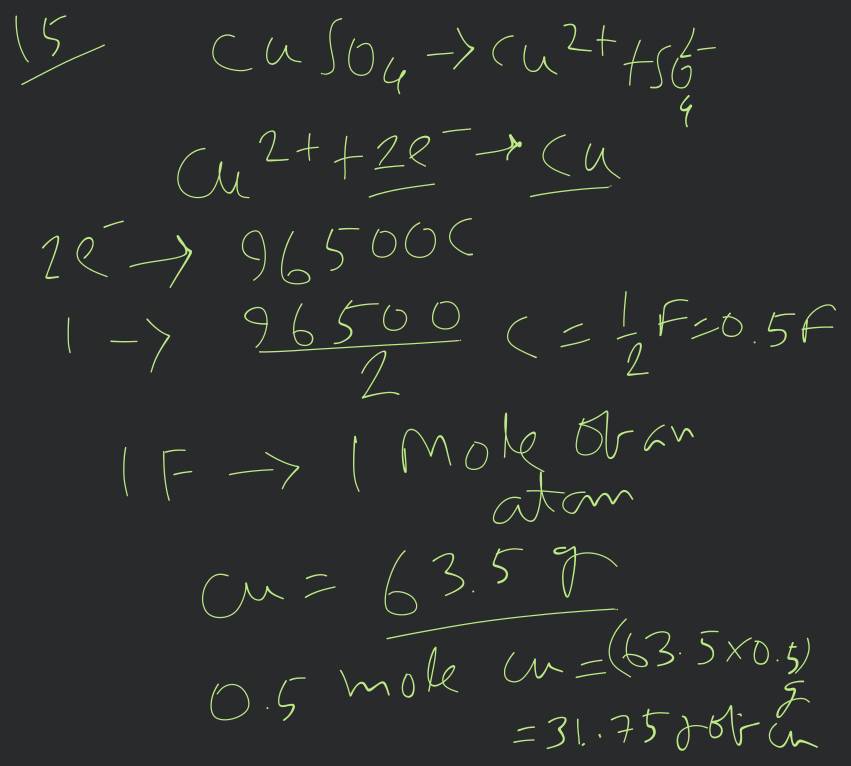 15 CuSO₄ → Cu²⁺ + SO₄²⁻
Cu²⁺ + 2e⁻ → Cu
2e⁻ → 96500C
1 → 96500/2 C = 1/2 F = 0.5F
1F → 1 Mole of an
atom
Cu = 63.5 g
0.5 mole Cu = (63.5 × 0.5)
g
= 31.75 g of Cu